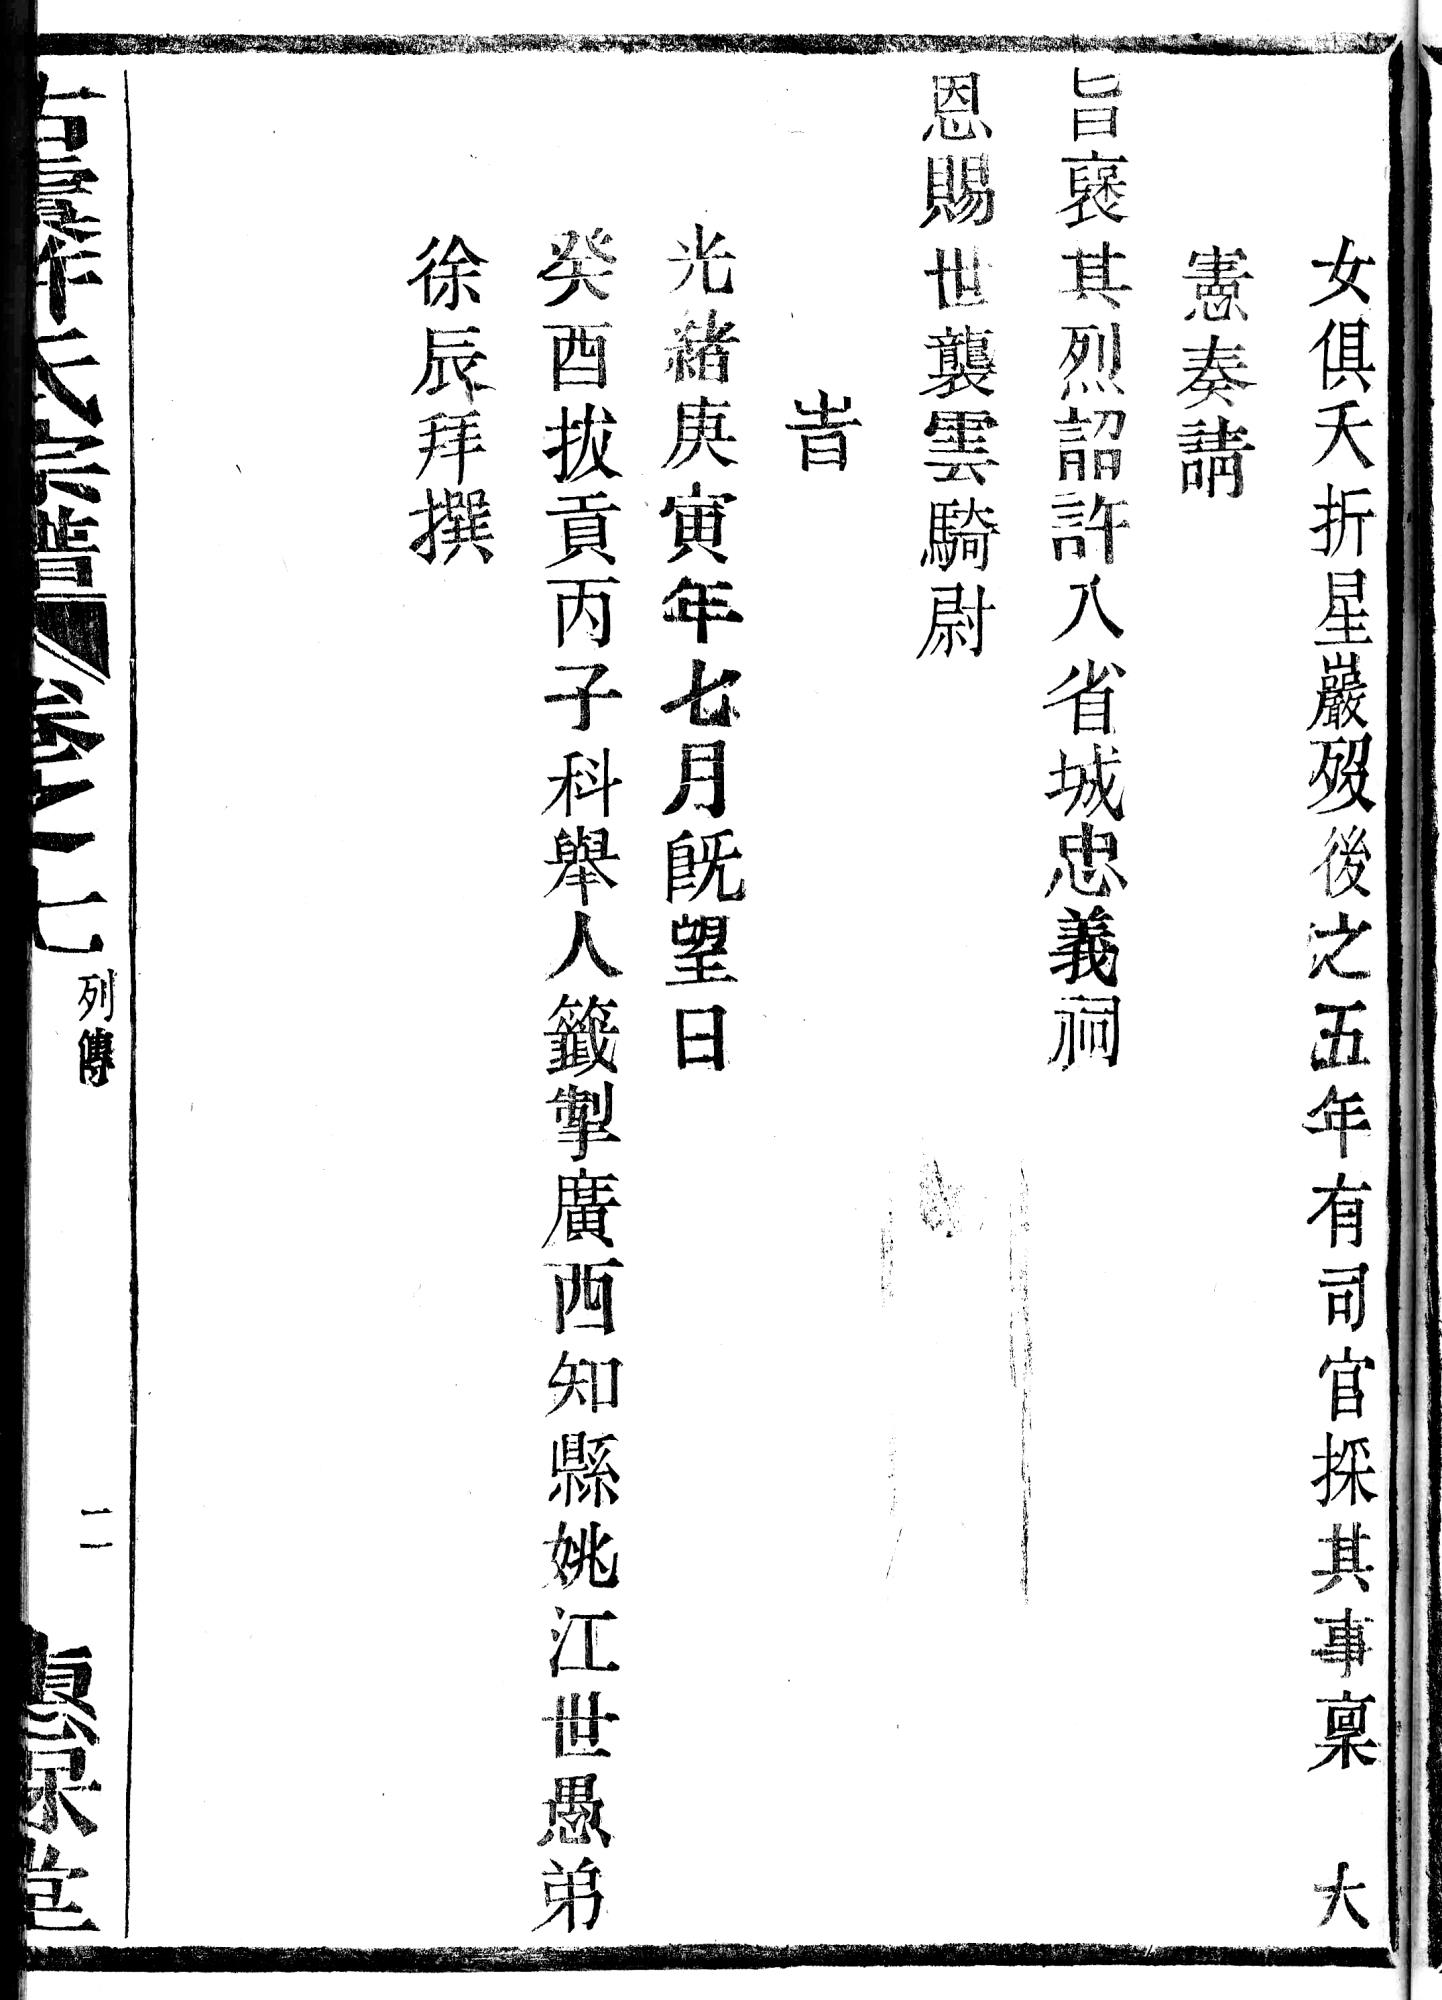 女俱夭折星巖歿後之五年有司官採其事稟　大
憲奏請
旨襃其烈詔許入省城忠義祠
恩賜世襲雲騎尉
旹
光緒庚寅年七月旣望日
癸酉拔貢丙子科舉人籤掣廣西知縣姚江世愚弟
徐辰拜撰
氏宗譜
卷之七
列傳
二